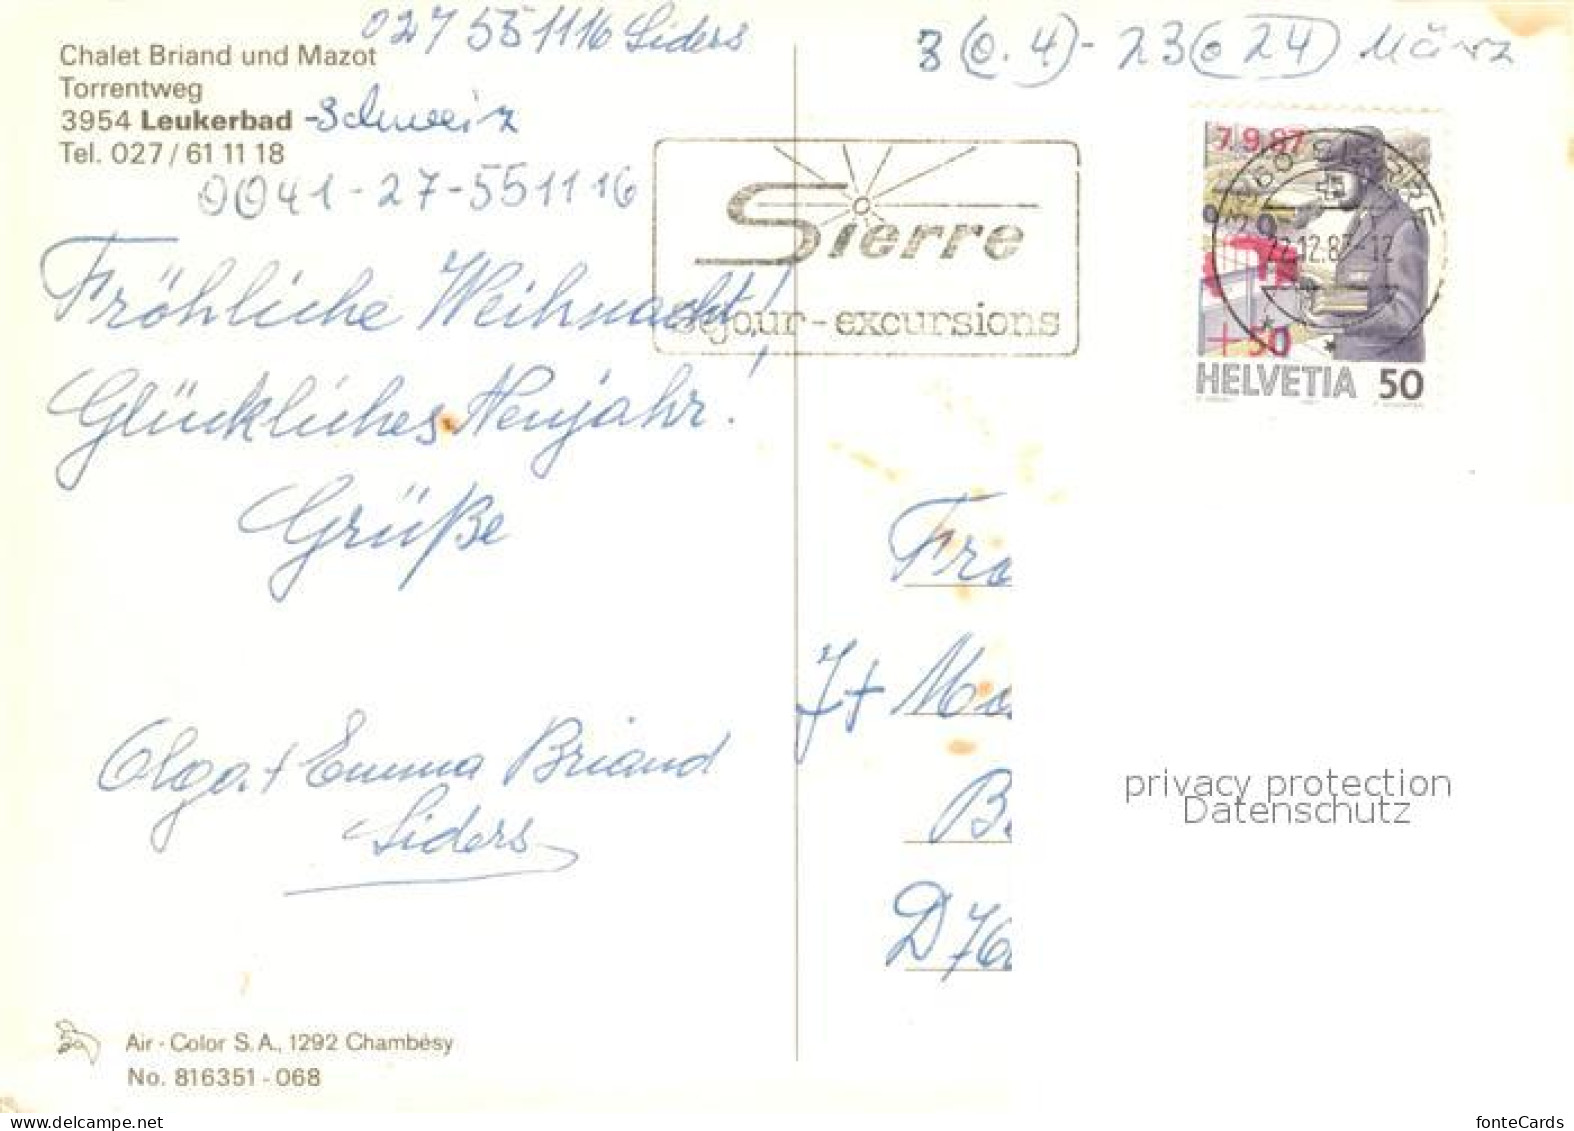 027 551116 Siders
Chalet Briand und Mazot
Torrentweg
3954 Leukerbad - Schweiz
Tel. 027 / 61 11 18
0041-27-551116
Fröhliche Weihnacht!
Glückliches Neujahr!
Grüße
Olga + Emma Briand
Siders
Air-Color S.A., 1292 Chambésy
No. 816351-068
3 (o. 4) - 23 (o 24) März
Sierre
séjour-excursions
7.9.87
3960 SIERRE
22.12.87-12
+50
HELVETIA 50
Fra
7+ Mo
B
D 76
privacy protection
Datenschutz
www.delcampe.net
fonteCards